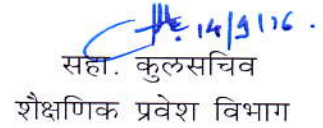 14/9/16.
सहा. कुलसचिव
शैक्षणिक प्रवेश विभाग